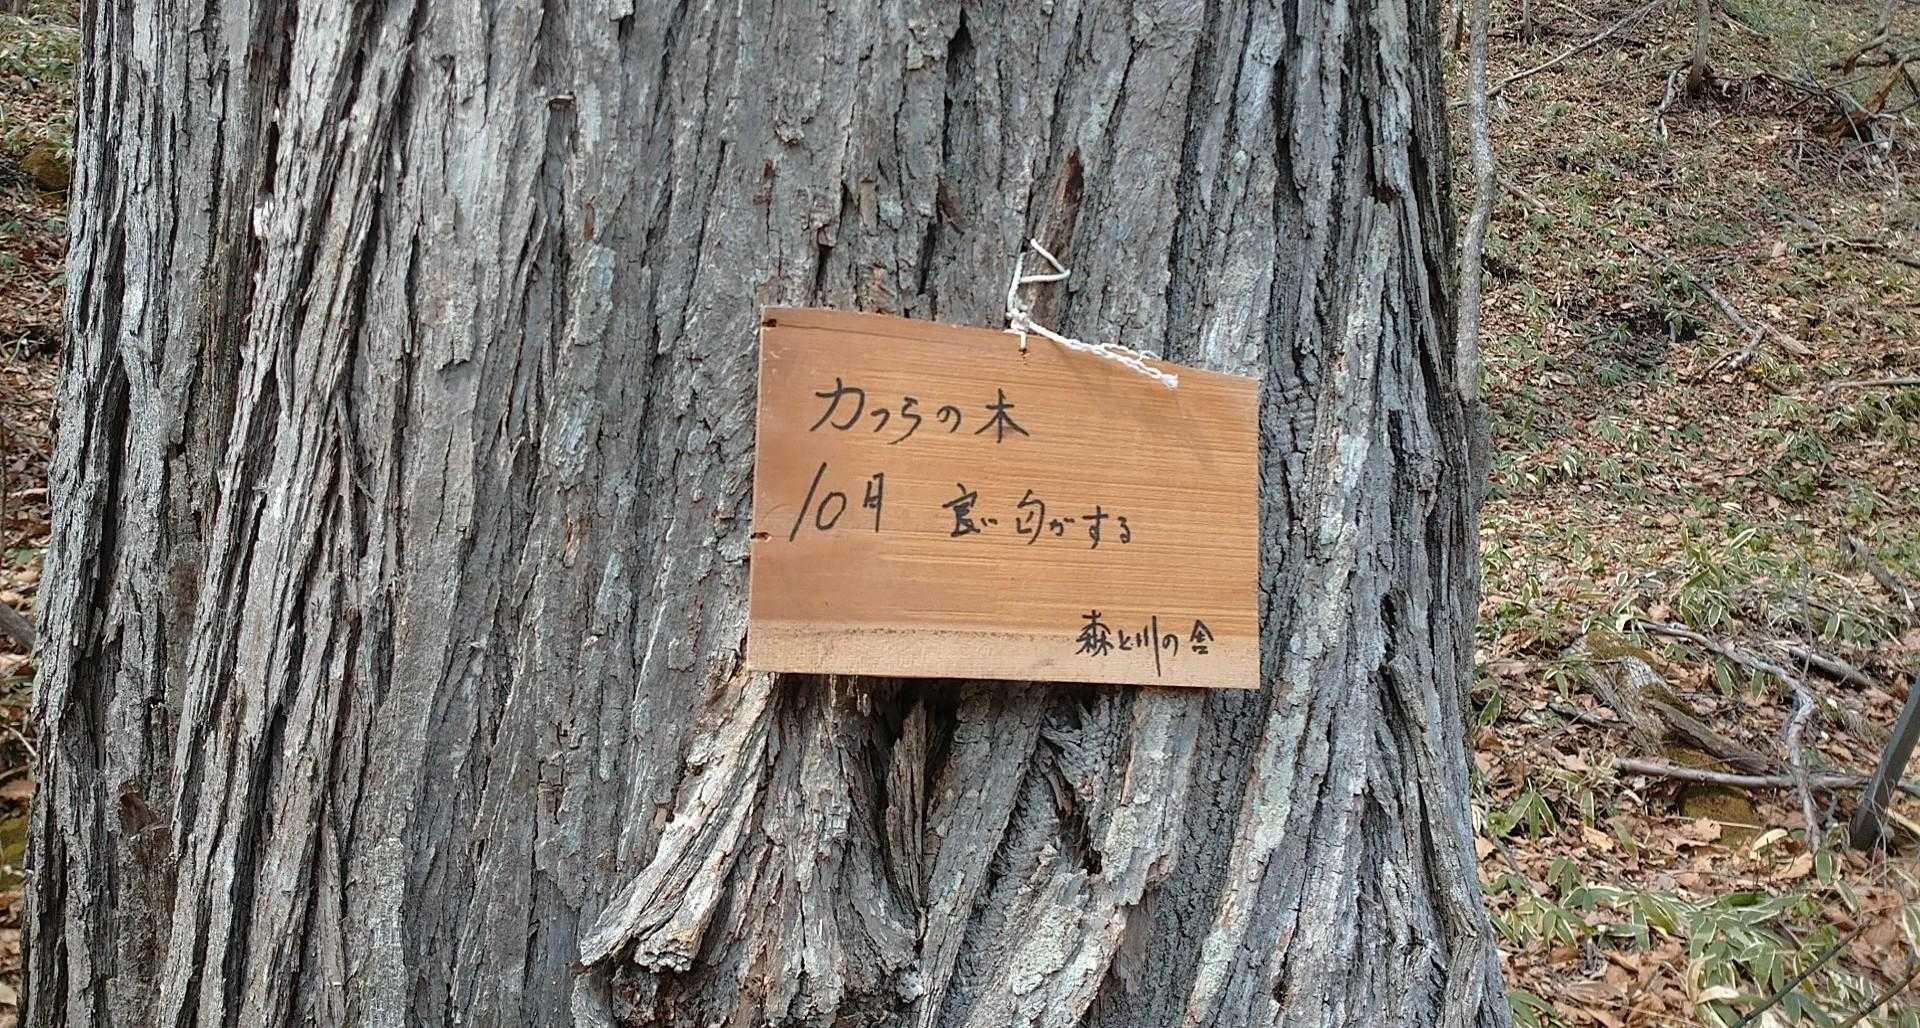 カつらの木
10月 良い匂がする
森と川の舎